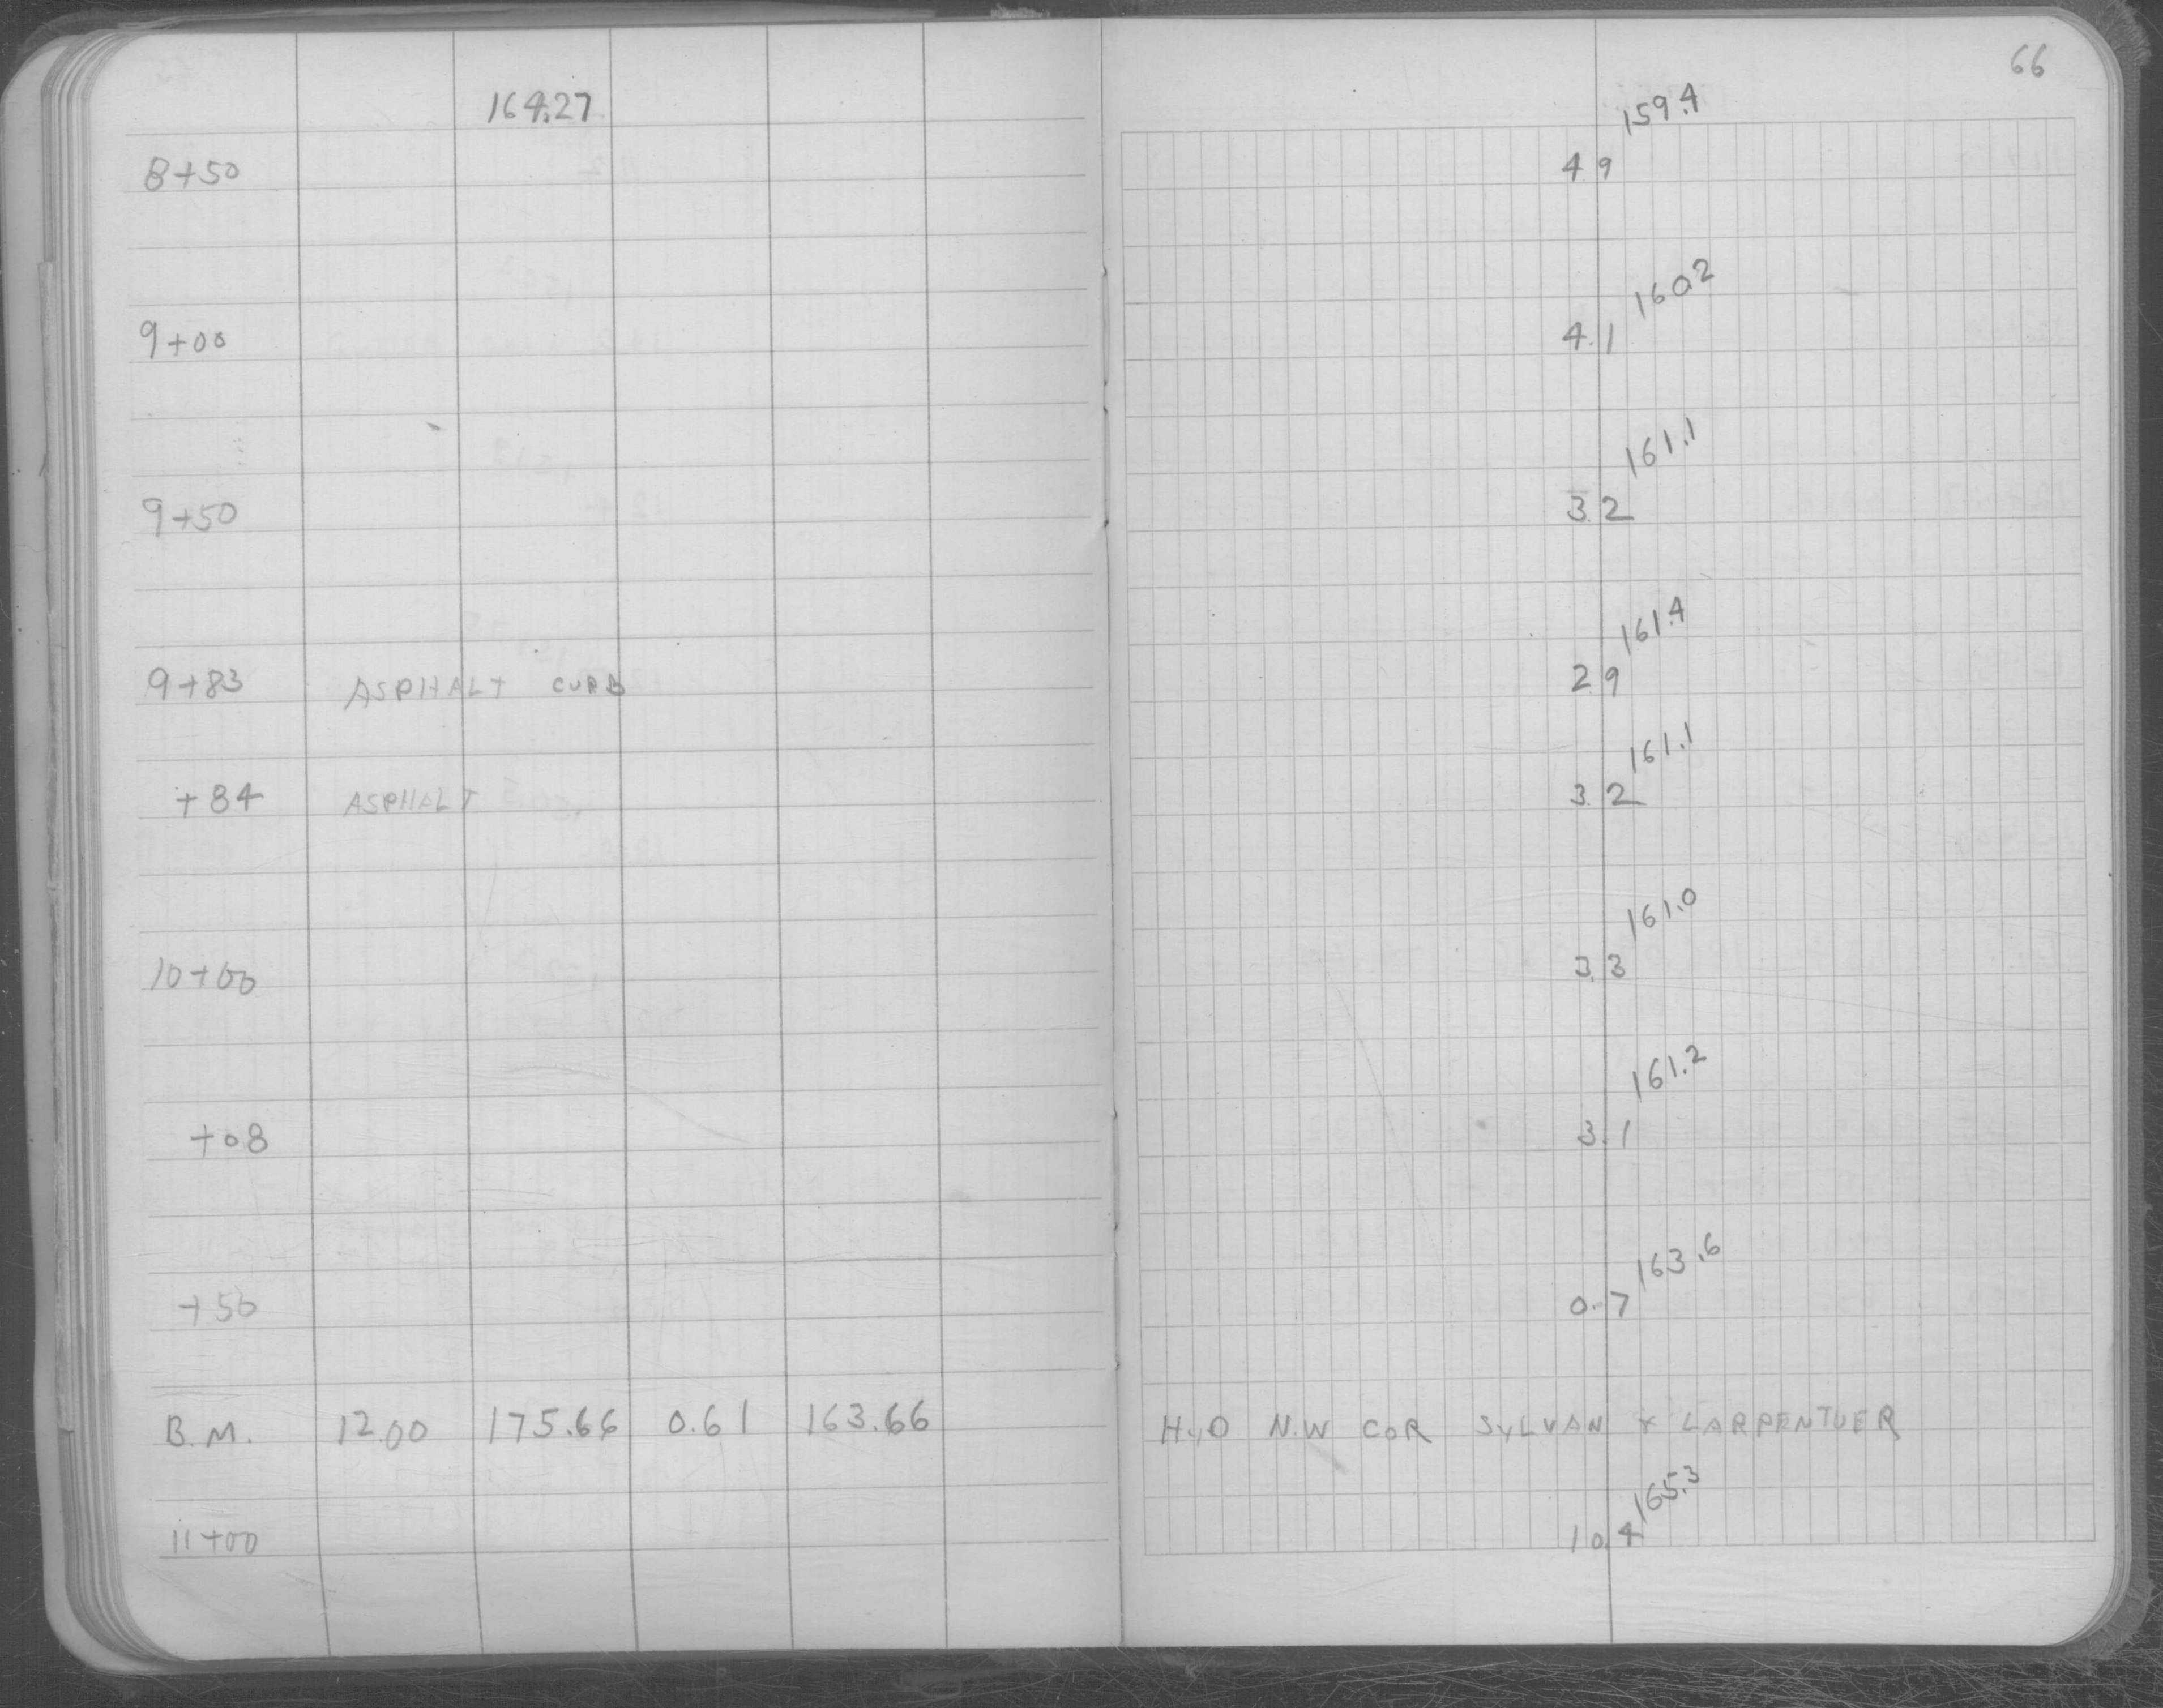 66
164.27
159.4
8+50 4.9
160.2
9+00 4.1
161.1
9+50 3.2
161.4
9+83 ASPHALT CURB 2.9
161.1
+84 ASPHALT 3.2
161.0
10+00 3.3
161.2
+08 3.1
163.6
+50 0.7
B.M. 12.00 175.66 0.61 163.66 HyD N.W COR SYLVAN & LARPENTUER
165.3
11+00 10.4